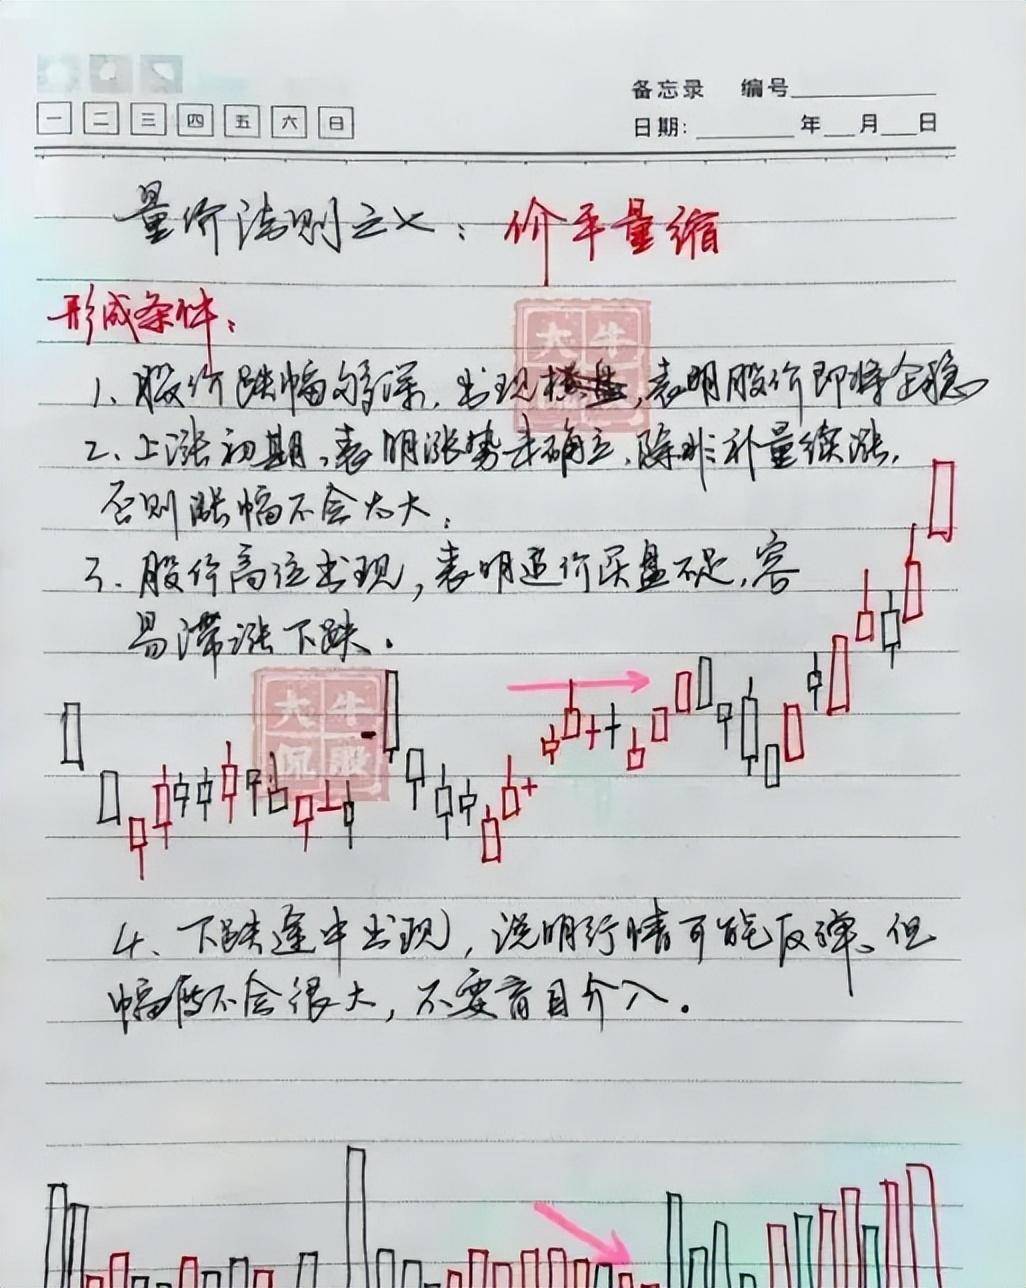 备忘录 编号
一 二 三 四 五 六 日
日期: 年 月 日
量价法则之七:价平量缩
形成条件:
大牛
侃股
1、股价跌幅够深,出现横盘,表明股价即将企稳
2、上涨初期,表明涨势未确立,除非补量续涨,
否则涨幅不会太大;
3、股价高位出现,表明追价买盘不足,容
易滞涨下跌.
大牛
侃股
4、下跌途中出现,说明行情可能反弹、但
幅度不会很大,不要盲目介入.